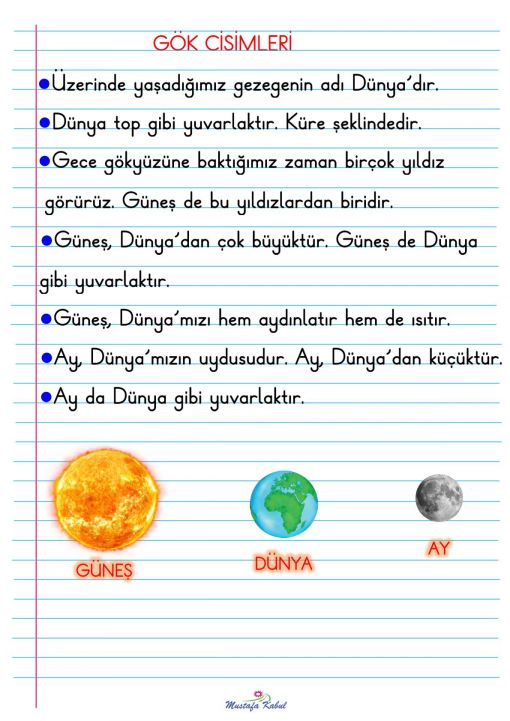 GÖK CİSİMLERİ
●Üzerinde yaşadığımız gezegenin adı Dünya'dır.
●Dünya top gibi yuvarlaktır. Küre şeklindedir.
●Gece gökyüzüne baktığımız zaman birçok yıldız
görürüz. Güneş de bu yıldızlardan biridir.
●Güneş, Dünya'dan çok büyüktür. Güneş de Dünya
gibi yuvarlaktır.
●Güneş, Dünya'mızı hem aydınlatır hem de ısıtır.
●Ay, Dünya'mızın uydusudur. Ay, Dünya'dan küçüktür.
●Ay da Dünya gibi yuvarlaktır.
GÜNEŞ
DÜNYA
AY
Mustafa Kabul